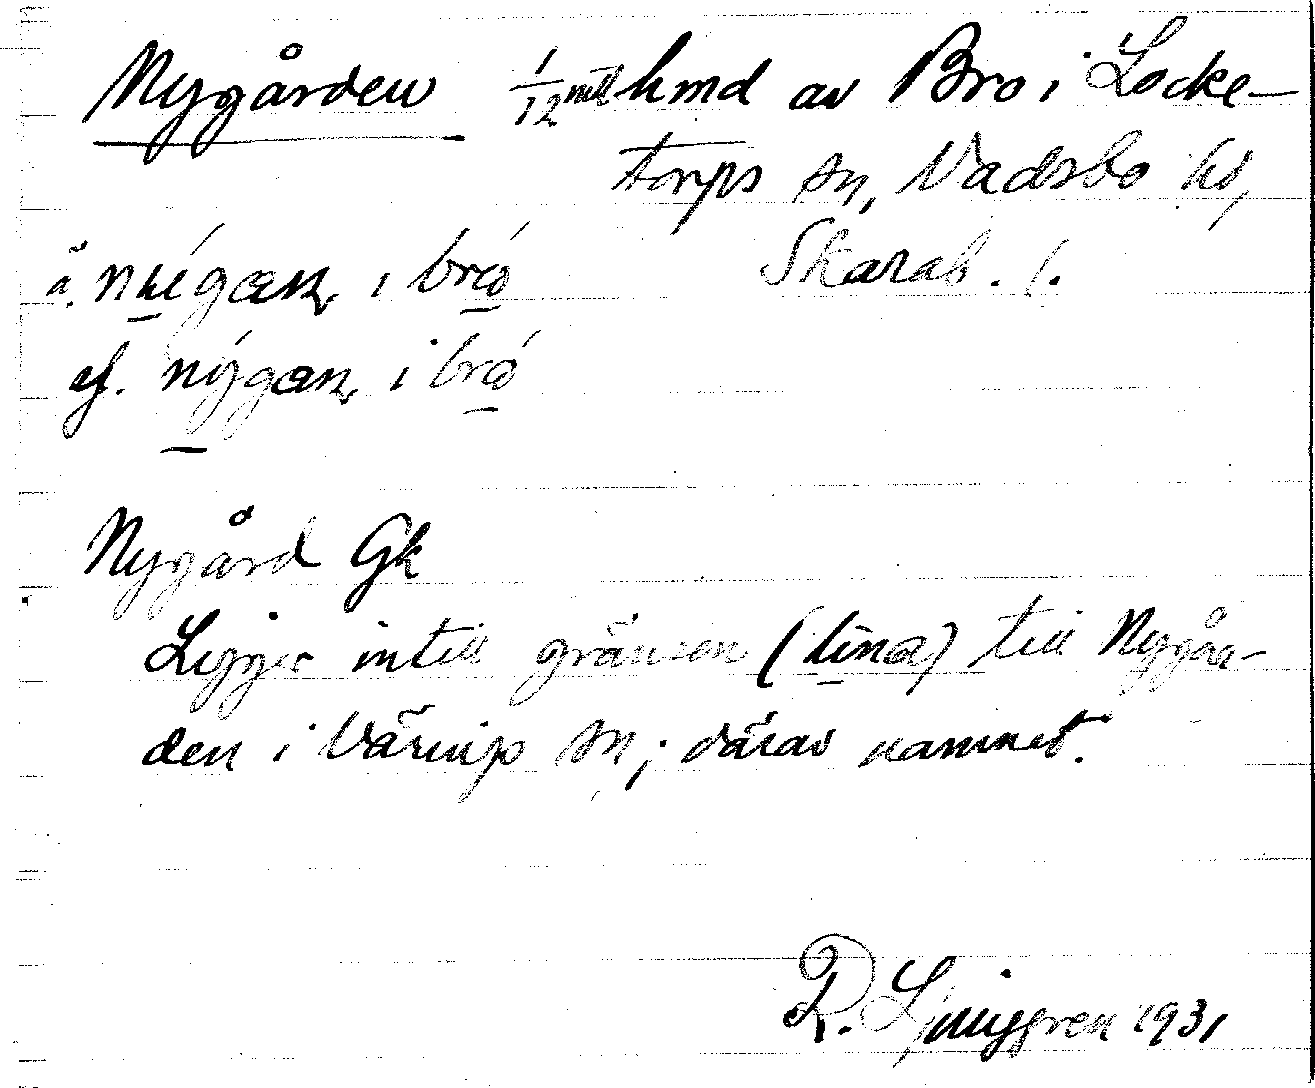 Nygården 1/12 mtl hmd av Bro i Locke-
torps sn, Vadsbo hd,
Skarab. l.
ä. i bró
yf. nýgæn, i bró
Nygård Gk
Ligger intill gränsen (lina) till Nygår-
den i Värsåp sn; därav namnet.
R. Ljunggren 1931